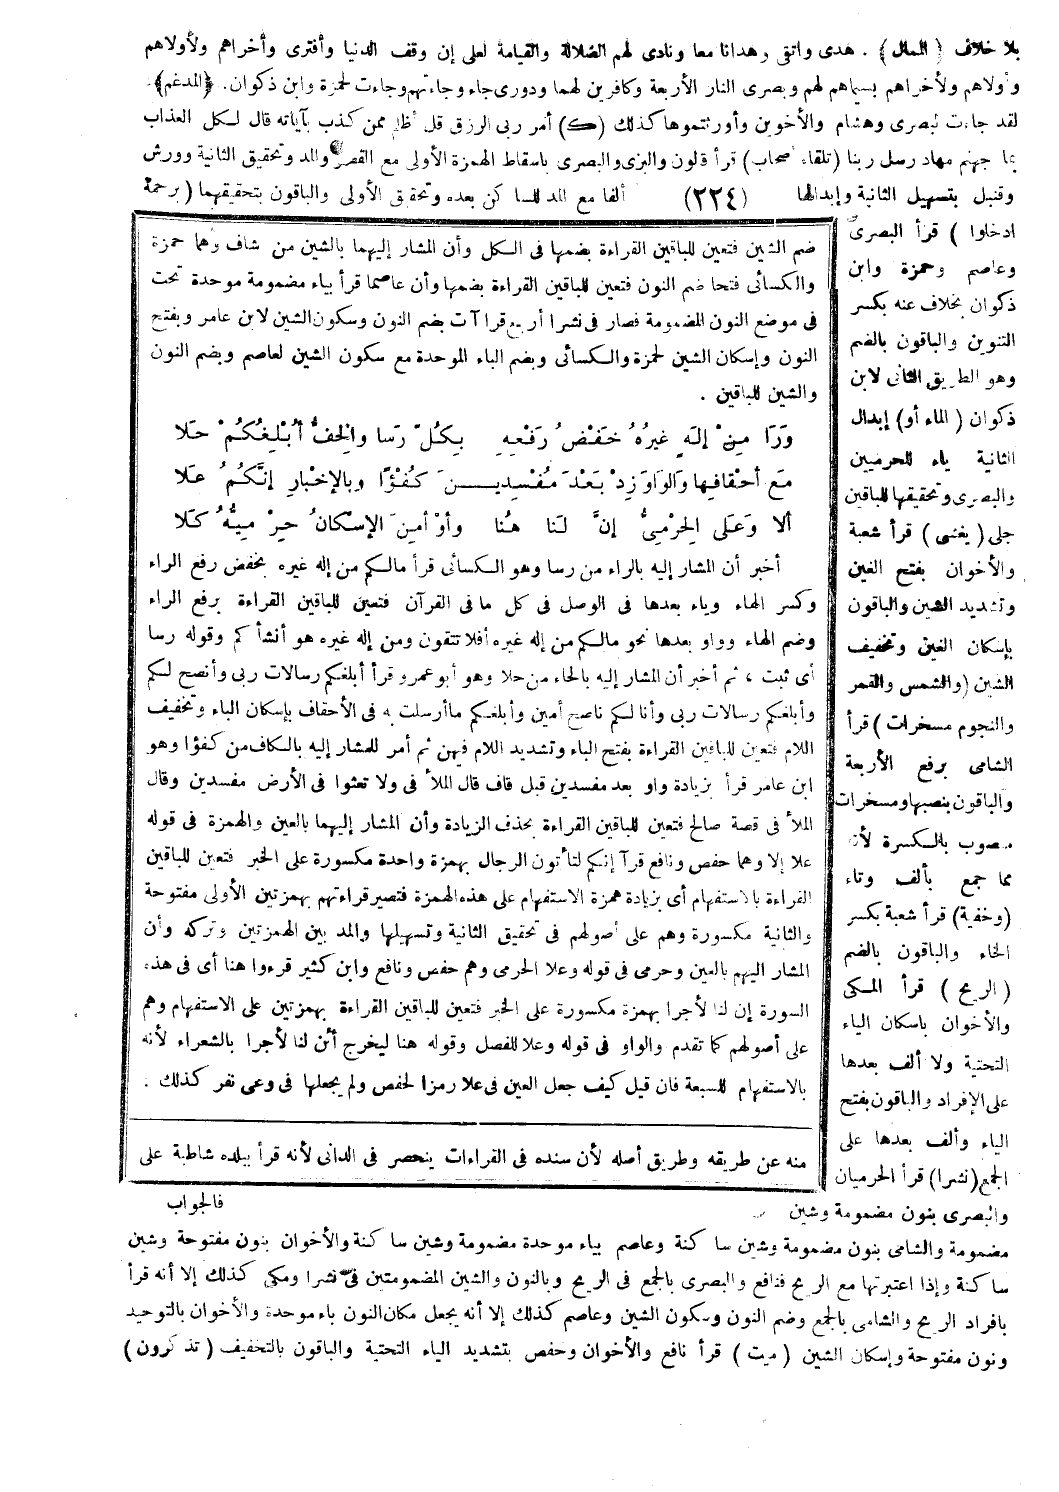 بلا خلاف ﴿ الممال ﴾ . هدى واتقى وهدانا معا ونادى لهم الضلالة والقيامة لعلى إن وقف الدنيا وأفترى وأخراهم ولأولاهم
وأولاهم ولأخراهم بسيماهم لهم وبصرى النار الأربعة وكافرين لهما ودورى جاء وجاءتهم وجاءت لحمزة وابن ذكوان. ﴿المدغم﴾.
لقد جاءت لبصرى وهشام والأخوين وأورثتموها كذلك (ك) أمر ربى الرزق قل أظلم ممن كذب بآياته قال لكل العذاب
بما جهنم مهاد رسل ربنا (تلقاء أصحاب) قرأ قالون والبزى والبصرى باسقاط الهمزة الأولى مع القصر والمد وتحقيق الثانية وورش
وقنبل بتسهيل الثانية وإبدالها (٢٢٤) ألفا مع المد للساكن بعده وتحقق الأولى والباقون بتحقيقهما (برحمة
ادخلوا ) قرأ البصرى
وعاصم وحمزة وابن
ذكوان بخلاف عنه بكسر
التنوين والباقون بالضم
وهو الطريق الثانى لابن
ذكوان ( الماء أو) إبدال
الثانية ياء للحرميين
والبصرى وتحقيقها للباقين
جلى ( يغشى ) قرأ شعبة
والأخوان بفتح الغين
وتشديد الشين والباقون
بإسكان الغين وتخفيف
الشين (والشمس والقمر
والنجوم مسخرات ) قرأ
الشامى برفع الأربعة
والباقون بنصبها ومسخرات
منصوب بالكسرة لأنه
مما جمع بألف وتاء
(وخفية) قرأ شعبة بكسر
الخاء والباقون بالضم
( الريح ) قرأ المكى
والأخوان باسكان الياء
التحتية ولا ألف بعدها
على الإفراد والباقون بفتح
الياء وألف بعدها على
الجمع (نشرا) قرأ الحرميان
والبصرى بنون مضمومة وشين
ضم الشين فتعين للباقين القراءة بضمها فى الكل وأن المشار إليهما بالشين من شاف وهما حمزة
والكسائى فتحا ضم النون فتعين للباقين القراءة بضمها وأن عاصما قرأ بباء مضمومة موحدة تحت
فى موضع النون المضمومة فصار فى نشرا أربع قراآت بضم النون وسكون الشين لابن عامر وبفتح
النون وإسكان الشين لحمزة والكسائى وبضم الباء الموحدة مع سكون الشين لعاصم وبضم النون
والشين للباقين .
وَرَا مِنْ إِلهٍ غَيْرُهُ خَفْضُ رَفْعِهِ بِكُلٍّ رَسا والخِفُّ أُبْلِغُكُمْ حَلا
مَعَ أحْقافِها وَالوَاوَ زِدْ بَعْدَ مُفْسِدِينَ كُفْؤًا وبالإخْبارِ إنَّكُمُ عَلا
ألا وَعَلى الحِرْمىُّ إنَّ لَنا هُنا وأوْ أمِنَ الإسْكانُ حِرْمِيُّهُ كَلا
أخبر أن المشار إليه بالراء من رسا وهو الكسائى قرأ مالكم من إله غيره بخفض رفع الراء
وكسر الهاء وياء بعدها فى الوصل فى كل ما فى القرآن فتعين للباقين القراءة برفع الراء
وضم الهاء وواو بعدها نحو مالكم من إله غيره أفلا تتقون ومن إله غيره هو أنشأكم وقوله رسا
أى ثبت ، ثم أخبر أن المشار إليه بالحاء من حلا وهو أبو عمرو قرأ أبلغكم رسالات ربى وأنصح لكم
وأبلغكم رسالات ربى وأنا لكم ناصح أمين وأبلغكم ماأرسلت به فى الأحقاف بإسكان الباء وتخفيف
اللام فتعين للباقين القراءة بفتح الباء وتشديد اللام فيهن ثم أمر للمشار إليه بالكاف من كفؤا وهو
ابن عامر قرأ بزيادة واو بعد مفسدين قبل قاف قال الملأ فى ولا تعثوا فى الأرض مفسدين وقال
الملأ فى قصة صالح فتعين للباقين القراءة بحذف الزيادة وأن المشار إليهما بالعين والهمزة فى قوله
علا إلا وهما حفص ونافع قرآ إنكم لتأتون الرجال بهمزة واحدة مكسورة على الخبر فتعين للباقين
القراءة بالاستفهام أى بزيادة همزة الاستفهام على هذه الهمزة فتصير قراءتهم بهمزتين الأولى مفتوحة
والثانية مكسورة وهم على أصولهم فى تحقيق الثانية وتسهيلها والمد بين الهمزتين وتركه وأن
المشار اليهم بالعين وحرمى فى قوله وعلا الحرمى وهم حفص ونافع وابن كثير قرءوا هنا أى فى هذه
السورة إن لنا لأجرا بهمزة مكسورة على الخبر فتعين للباقين القراءة بهمزتين على الاستفهام وهم
على أصولهم كما تقدم والواو فى قوله وعلا للفصل وقوله هنا ليخرج أئن لنا لأجرا بالشعراء لأنه
بالاستفهام للسبعة فان قيل كيف جعل العين فى علا رمزا لحفص ولم يجعلها فى وعى نفر كذلك .
منه عن طريقه وطريق أصله لأن سنده فى القراءات ينحصر فى الدانى لأنه قرأ ببلده شاطبة على
فالجواب
مضمومة والشامى بنون مضمومة وشين ساكنة وعاصم بباء موحدة مضمومة وشين ساكنة والأخوان بنون مفتوحة وشين
ساكنة وإذا اعتبرتها مع الريح فنافع والبصرى بالجمع فى الريح وبالنون والشين المضمومتين فى نشرا ومكى كذلك إلا أنه قرأ
بافراد الريح والشامى بالجمع وضم النون وسكون الشين وعاصم كذلك إلا أنه يجعل مكان النون باء موحدة والأخوان بالتوحيد
ونون مفتوحة وإسكان الشين ( ميت ) قرأ نافع والأخوان وحفص بتشديد الياء التحتية والباقون بالتخفيف ( تذكرون )